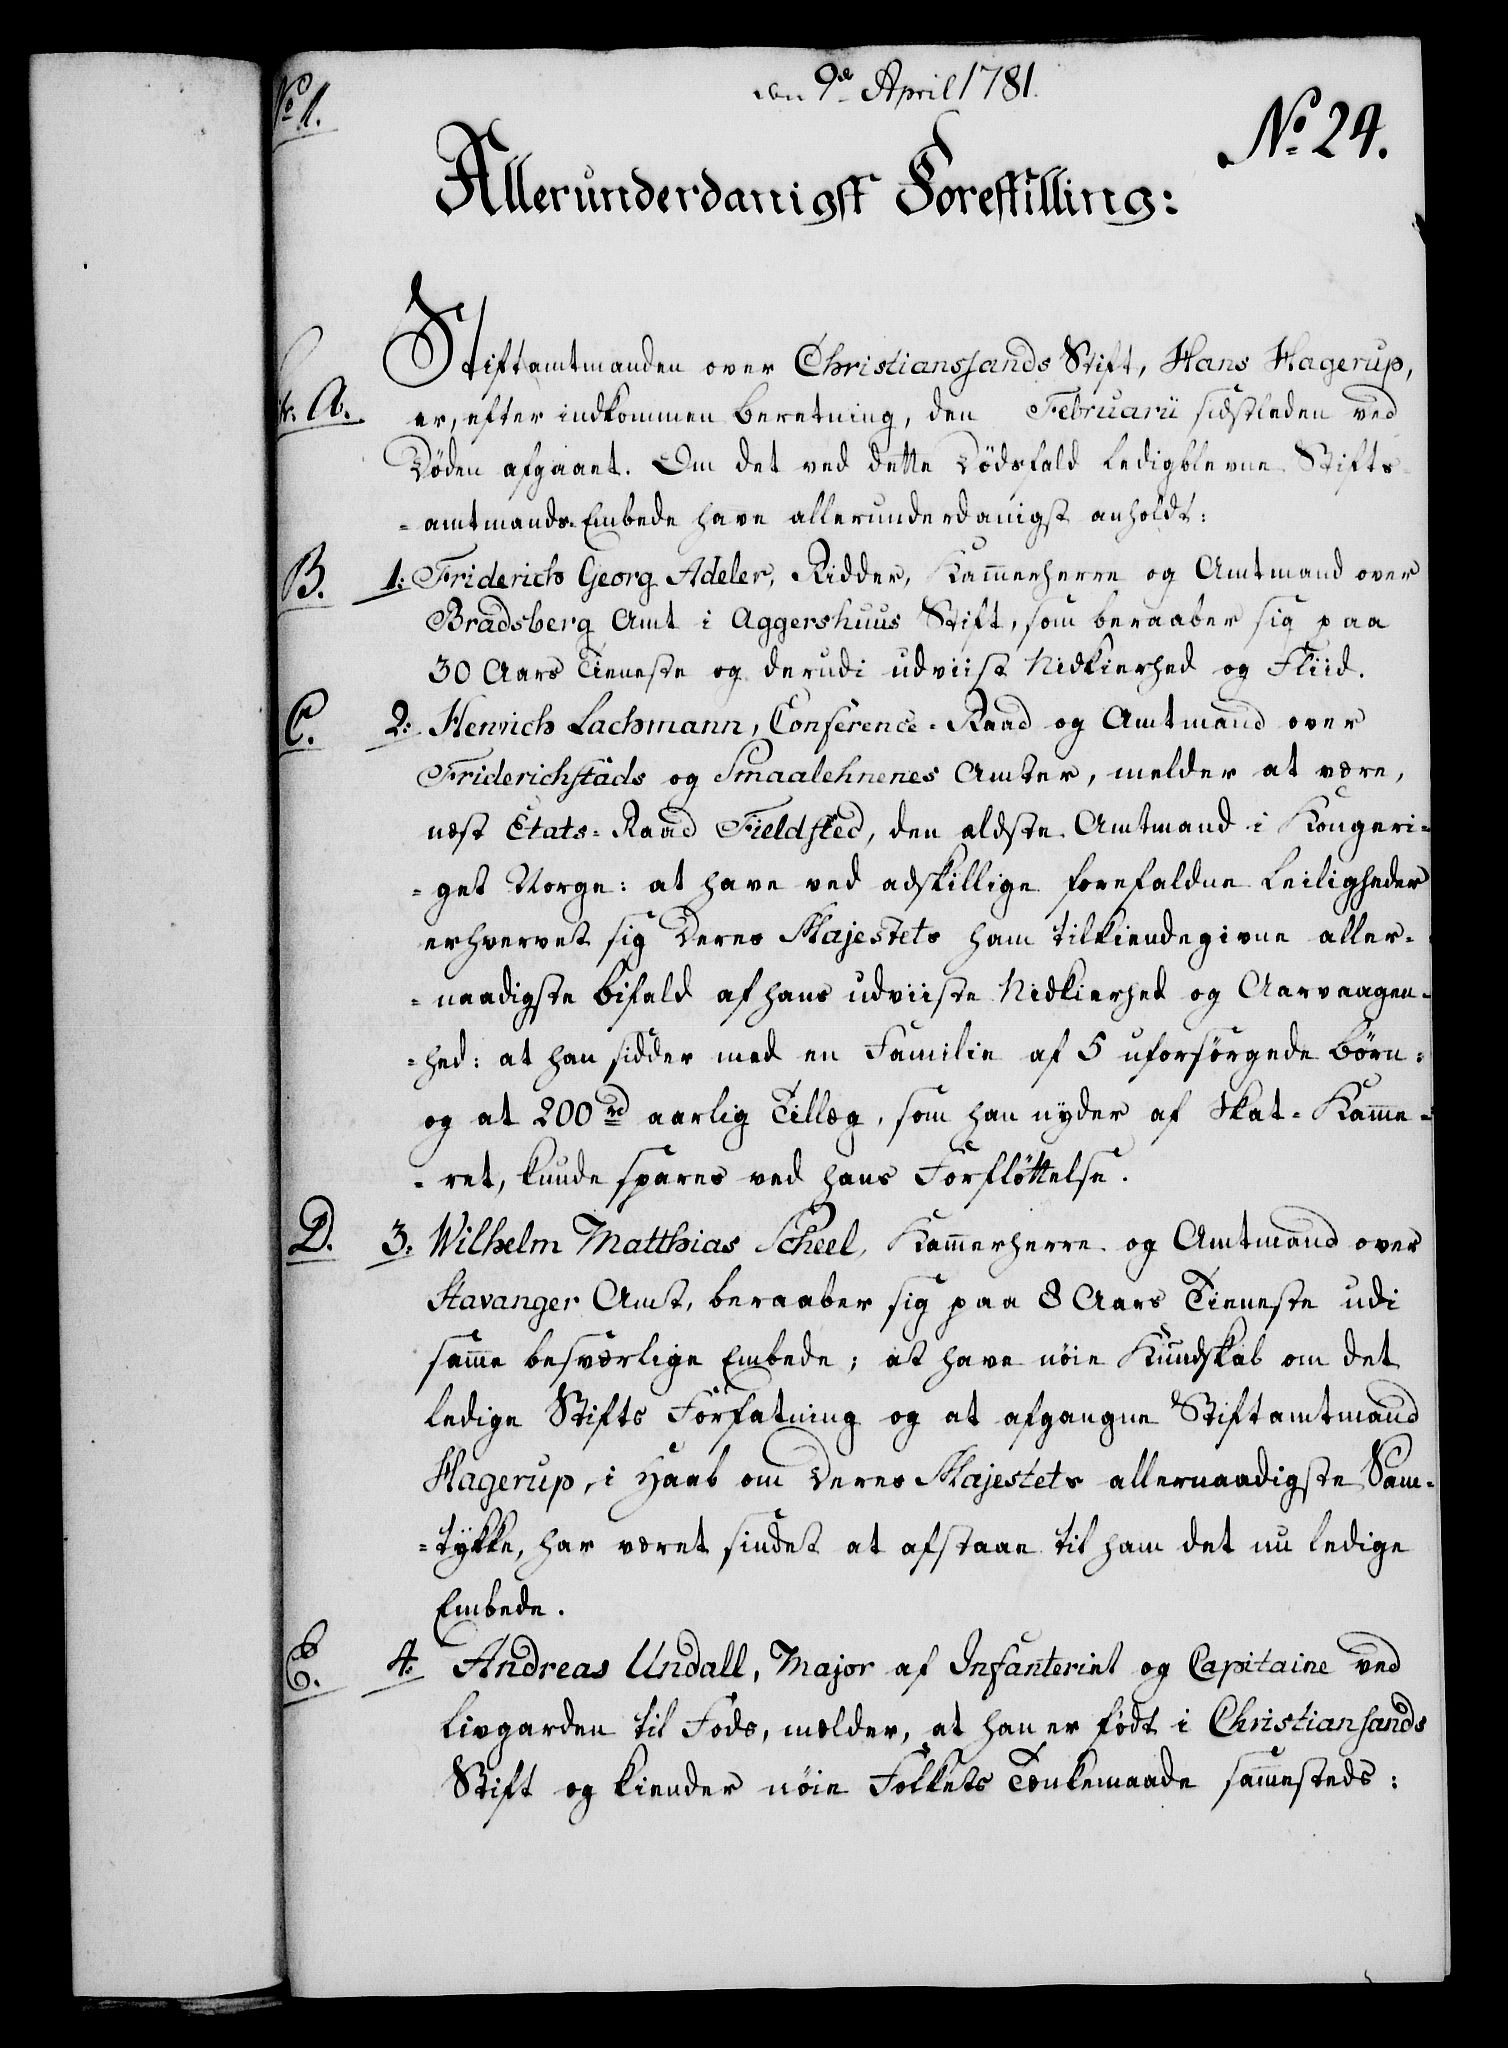 den 9de April 1781.
No 1.
No 24.
Allerunderdanigst Forestilling:
Stiftamtmanden over Christianssands Stift, Hans Hagerup,
A. er, efter indkommen beretning, den Februarii sidstleden ved
Döden afgaaet. Om det ved dette Dödsfald ledigblevne Stifts-
-amtmands-Embede have allerunderdanigst anholdt:
B. 1: Friderich Georg Adeler, Ridder, Kam̄erherre og Amtmand over
Bradsberg Amt i Aggershuus Stift, som beraaber sig paa
30 Aars Tieneste og derudi udviist Nidkierhed og Fliid.
C. 2: Henrich Lachmann, Conference-Raad og Amtmand over
Friderichstads og Smaalehnenes Amter, melder at være,
næst Etats-Raad Fieldsted, den ældste Amtmand i Kongeri-
-get Norge: at have ved adskillige forefaldne Leiligheder
erhvervet sig Deres Majestets ham tilkiendegivne aller-
-naadigste bifald af hans udviiste Nidkierhed og Aarvaagen-
-hed: at han sidder med en Familie af 5 uforsörgede börn:
og at 200 rd aarlig Tillæg, som han nyder af Skat-Kam̄e-
-ret, kunde spares ved hans Forflöttelse.
D. 3. Wilhelm Matthias Scheel, Kam̄erherre og Amtmand over
Stavanger Amt, beraaber sig paa 8 Aars Tieneste udi
sam̄e besværlige Embede; at have nöie Kundskab om det
ledige Stifts Forfatning og at afgangne Stiftamtmand
Hagerup, i Haab om Deres Majestets allernaadigste Sam-
-tykke, har været sindet at afstaae til ham det nu ledige
Embede.
E. 4. Andreas Undall, Major af Infanteriet og Capitaine ved
Livgarden til Fods, melder, at han er födt i Christiansands
Stift og kiender nöie Folkets Tænkemaade sam̄esteds: